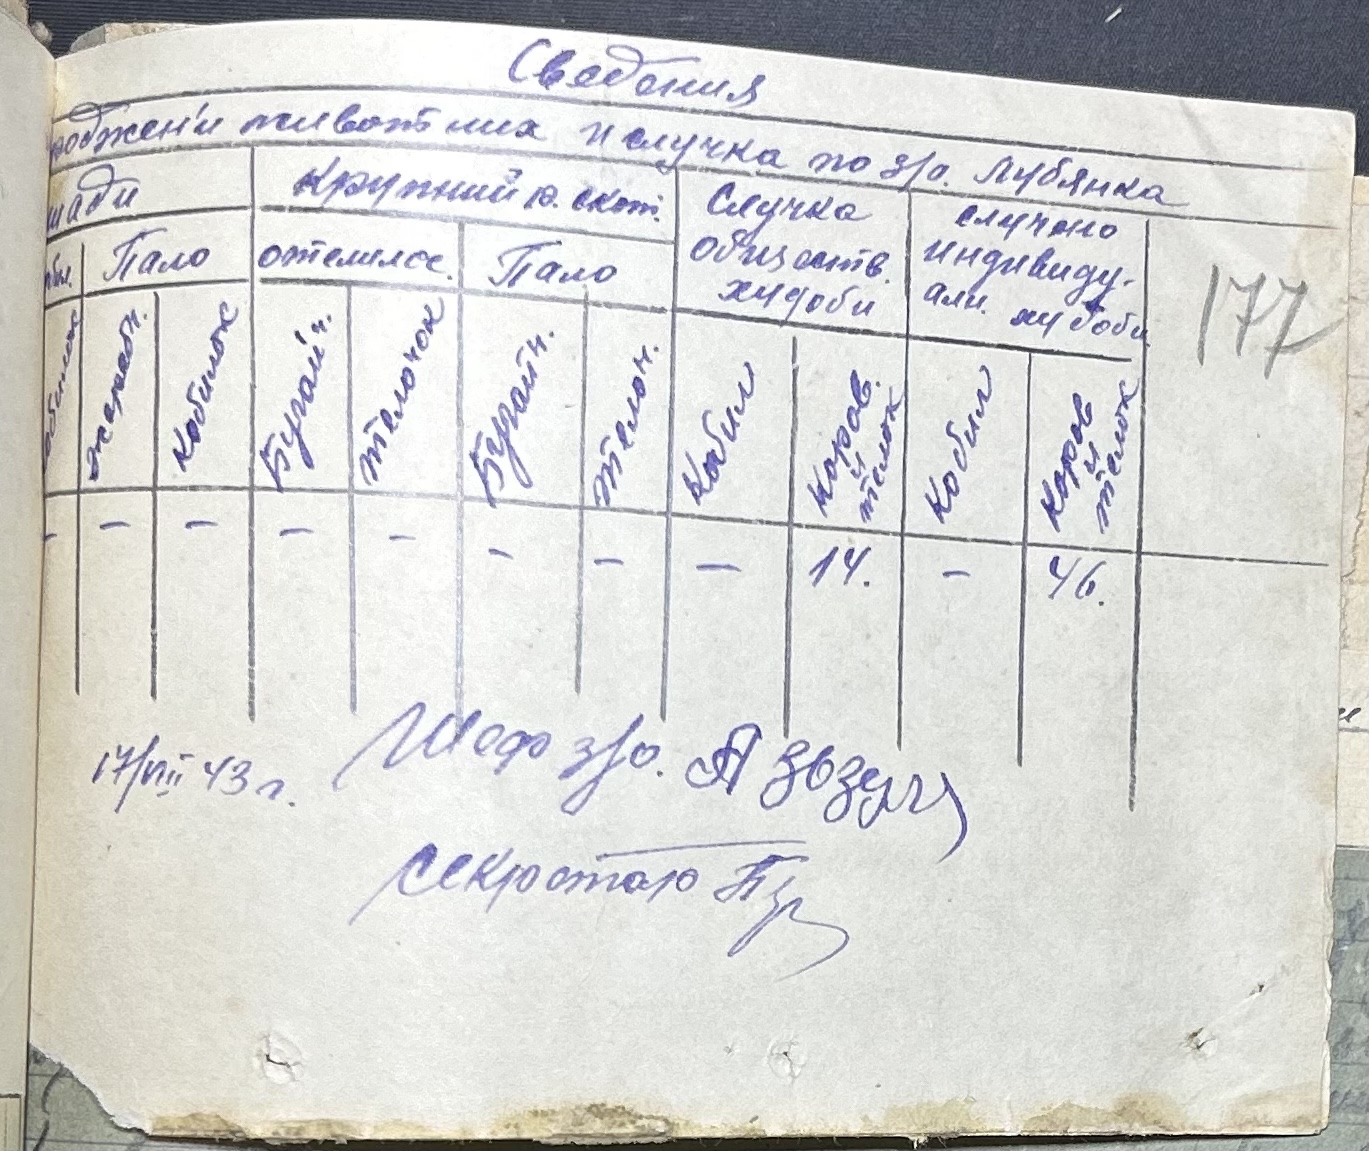 Сведения
роджен'и животних и случка по з/о. Лубянка
шади
Крупний р. скот.
Случка
обществ.
худоби
случено
индивиду-
алн. худоби
177
обил.
Пало
отелилос.
Пало
Кобилок
жеребч.
Кобилок
Бугайч.
телочок
Бугайч.
телоч.
Кобил
Коров.
и
телок
Кобил
Коров
и
телок
- - - - - - - - 14. - 46.
17/VIII 43 г.
Шеф з/о.
Секретаю